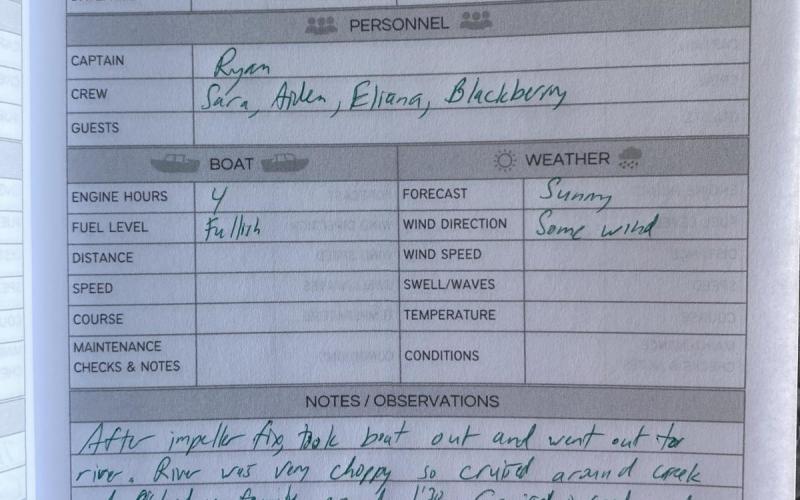 PERSONNEL
CAPTAIN Ryan
CREW Sara, Aiden, Eliana, Blackberry
GUESTS
BOAT WEATHER
ENGINE HOURS 4 FORECAST Sunny
FUEL LEVEL Fullish WIND DIRECTION Some wind
DISTANCE WIND SPEED
SPEED SWELL/WAVES
COURSE TEMPERATURE
MAINTENANCE
CHECKS & NOTES CONDITIONS
NOTES / OBSERVATIONS
After impeller fix, took boat out and went out to
river. River was very choppy so cruised around creek